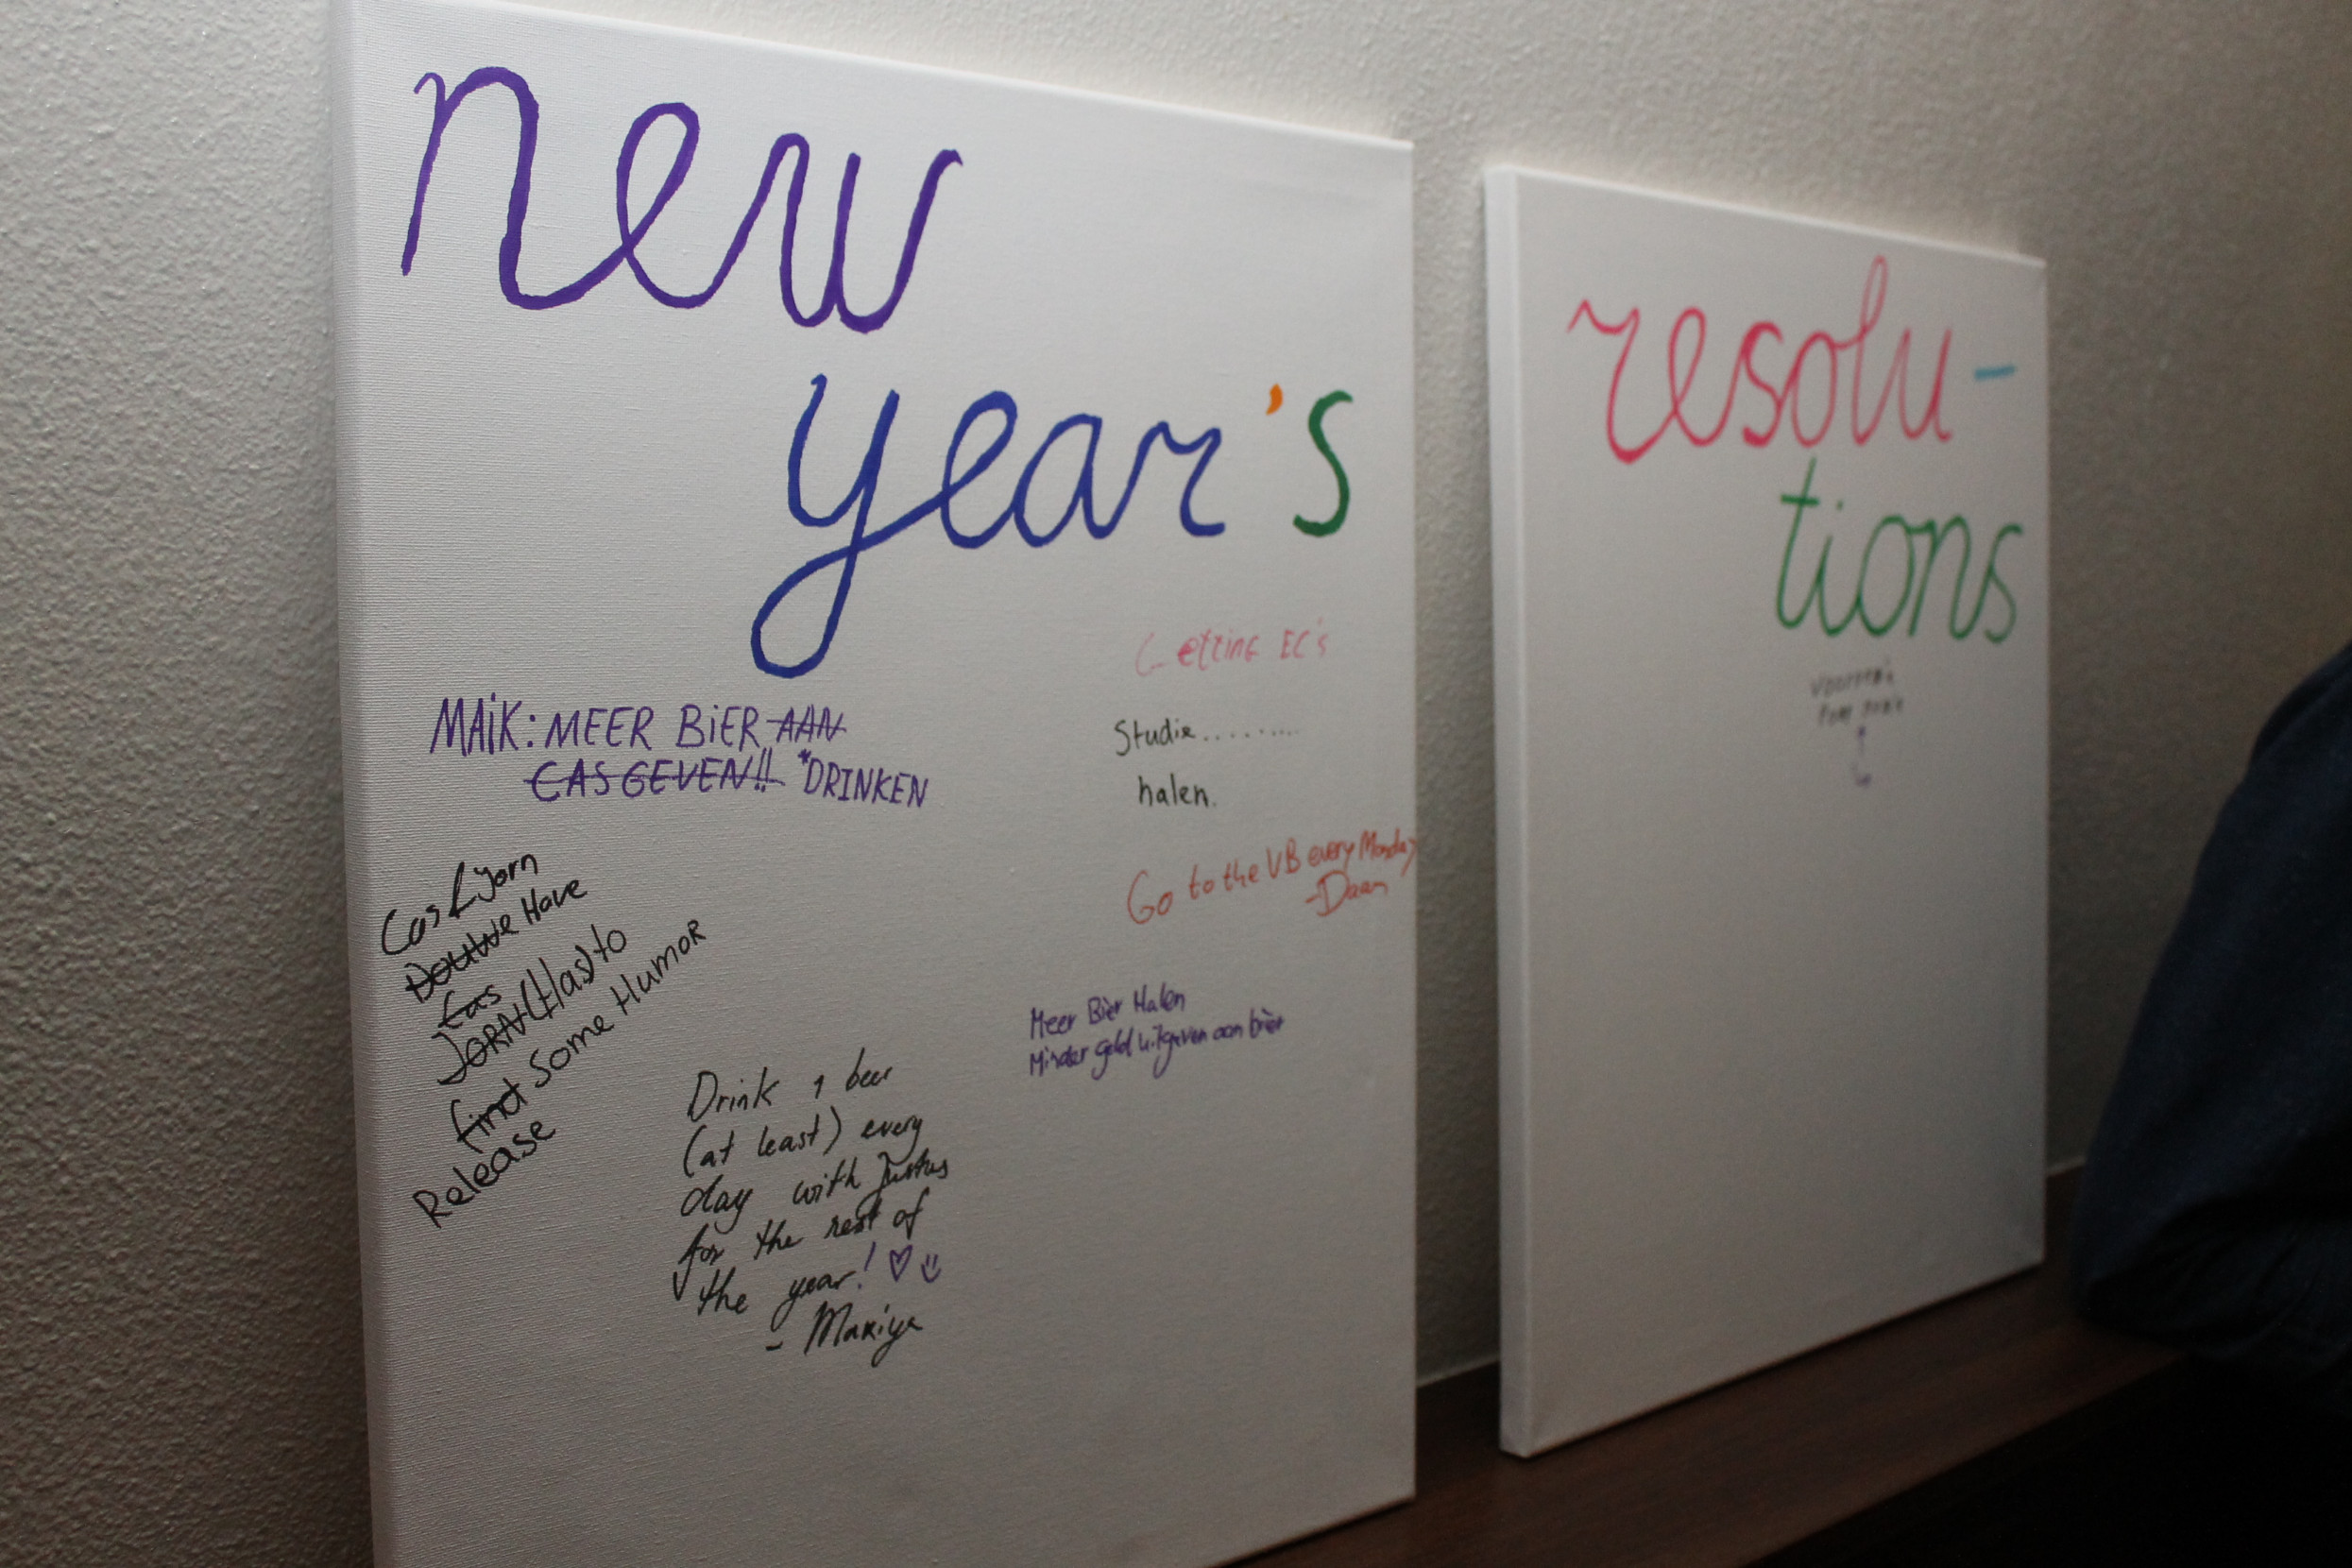 new
year's
MAiK: MEER BiER AAN
CAS GEVEN!! *DRINKEN
Cas & Jorn
DOUWE Have
Cas
JORN (Has) to
find Some Humor
Release
Drink 1 beer
(at least) every
day with Justus
for the rest of
the year! ♡
- Mariya
Getting EC's
Studie.........
halen.
Go to the VB every Monday
-Daan
Meer Bier Halen
Minder geld uitgeven aan bier
resolu-
tions